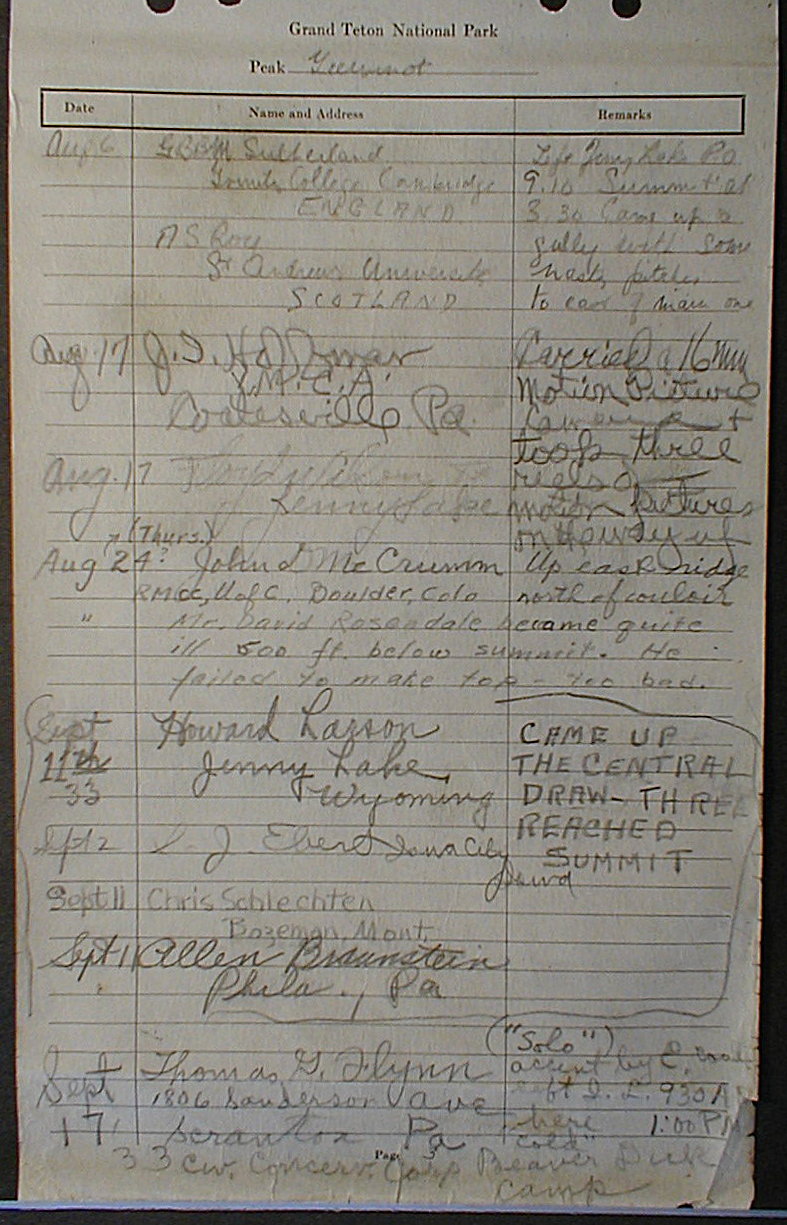 Grand Teton National Park
Peak Teewinot
Date Name and Address Remarks
Aug 6 GBBM Sutherland Left Jenny Lake P.O
Trinity College Cambridge 9.10 Summit at
ENGLAND 3.30 Came up a
A S Roy gully with some
St Andrews University nasty pitches
SCOTLAND to east of main one
Aug 17 J. I. Carried a 16 mm
Y.M.C.A. Motion Picture
Coatesville, Pa. Camera +
took three
Aug. 17 Floyd reels of
Jenny Lake motion pictures
(Thurs.) on the way up
Aug 24? John D McCrumm Up east ridge
RMCC, U of C. Boulder, Colo north of couloir
" Mr. David Rosendale became quite
ill 500 ft. below summit. He
failed to make top - too bad.
Sept Howard Larson CAME UP
11th Jenny Lake, THE CENTRAL
33 Wyoming DRAW - THREE
REACHED
Sept 2 J Ebert Iowa City SUMMIT
Iowa
Sept 11 Chris Schlechten
Bozeman, Mont.
Sept 11 Allen Braunstein
" Phila., Pa
("Solo")
Sept Thomas G. Flynn accent by C.
1806 Sanderson Ave left J. L. 930 A
17 Scranton Pa here 1:00 PM
"cold"
Page 3
33 Civ. Conserv. Corp Beaver Dick
Camp